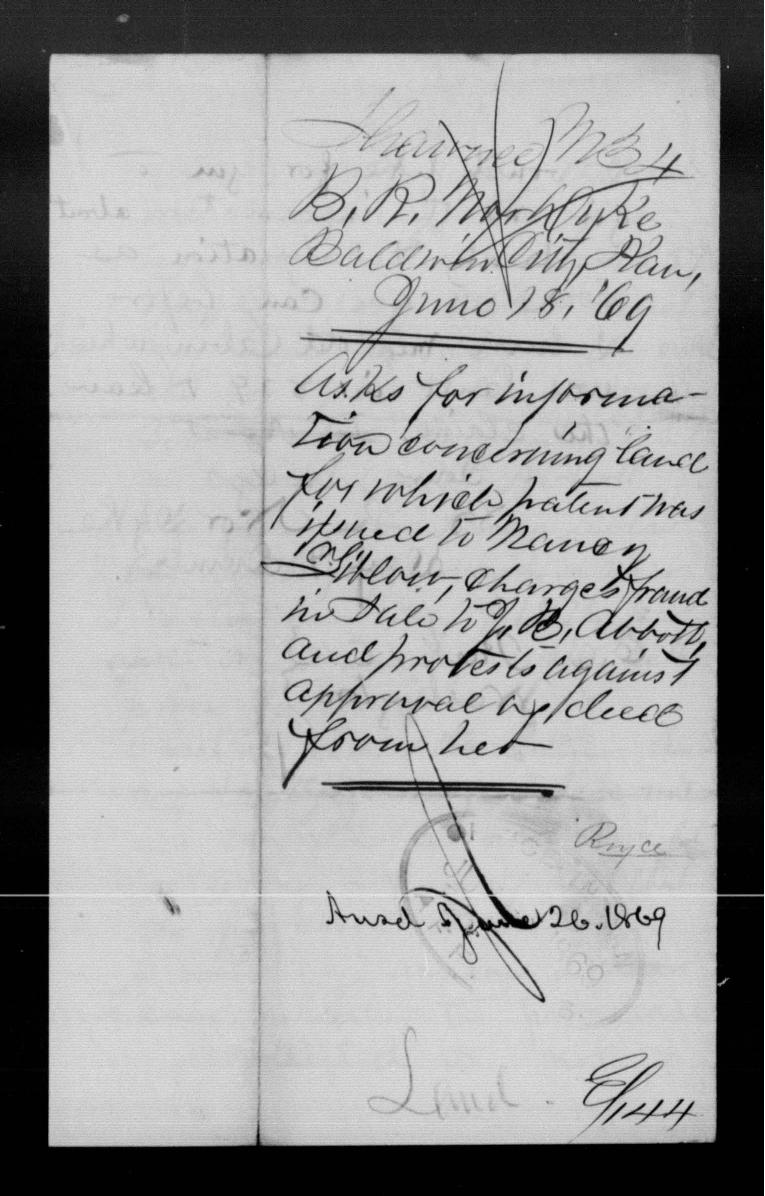 Shawnee N 34
B. R. Nordyke
Baldwin City Kan,
June 18, '69
Asks for informa-
tion concerning land
for which patent was
issued to Nancy
Silow, charges fraud
in sale to J. B. Abbott,
and protests against
approval of deed
from her
Royce
Ansd June 26. 1869
Land.
144